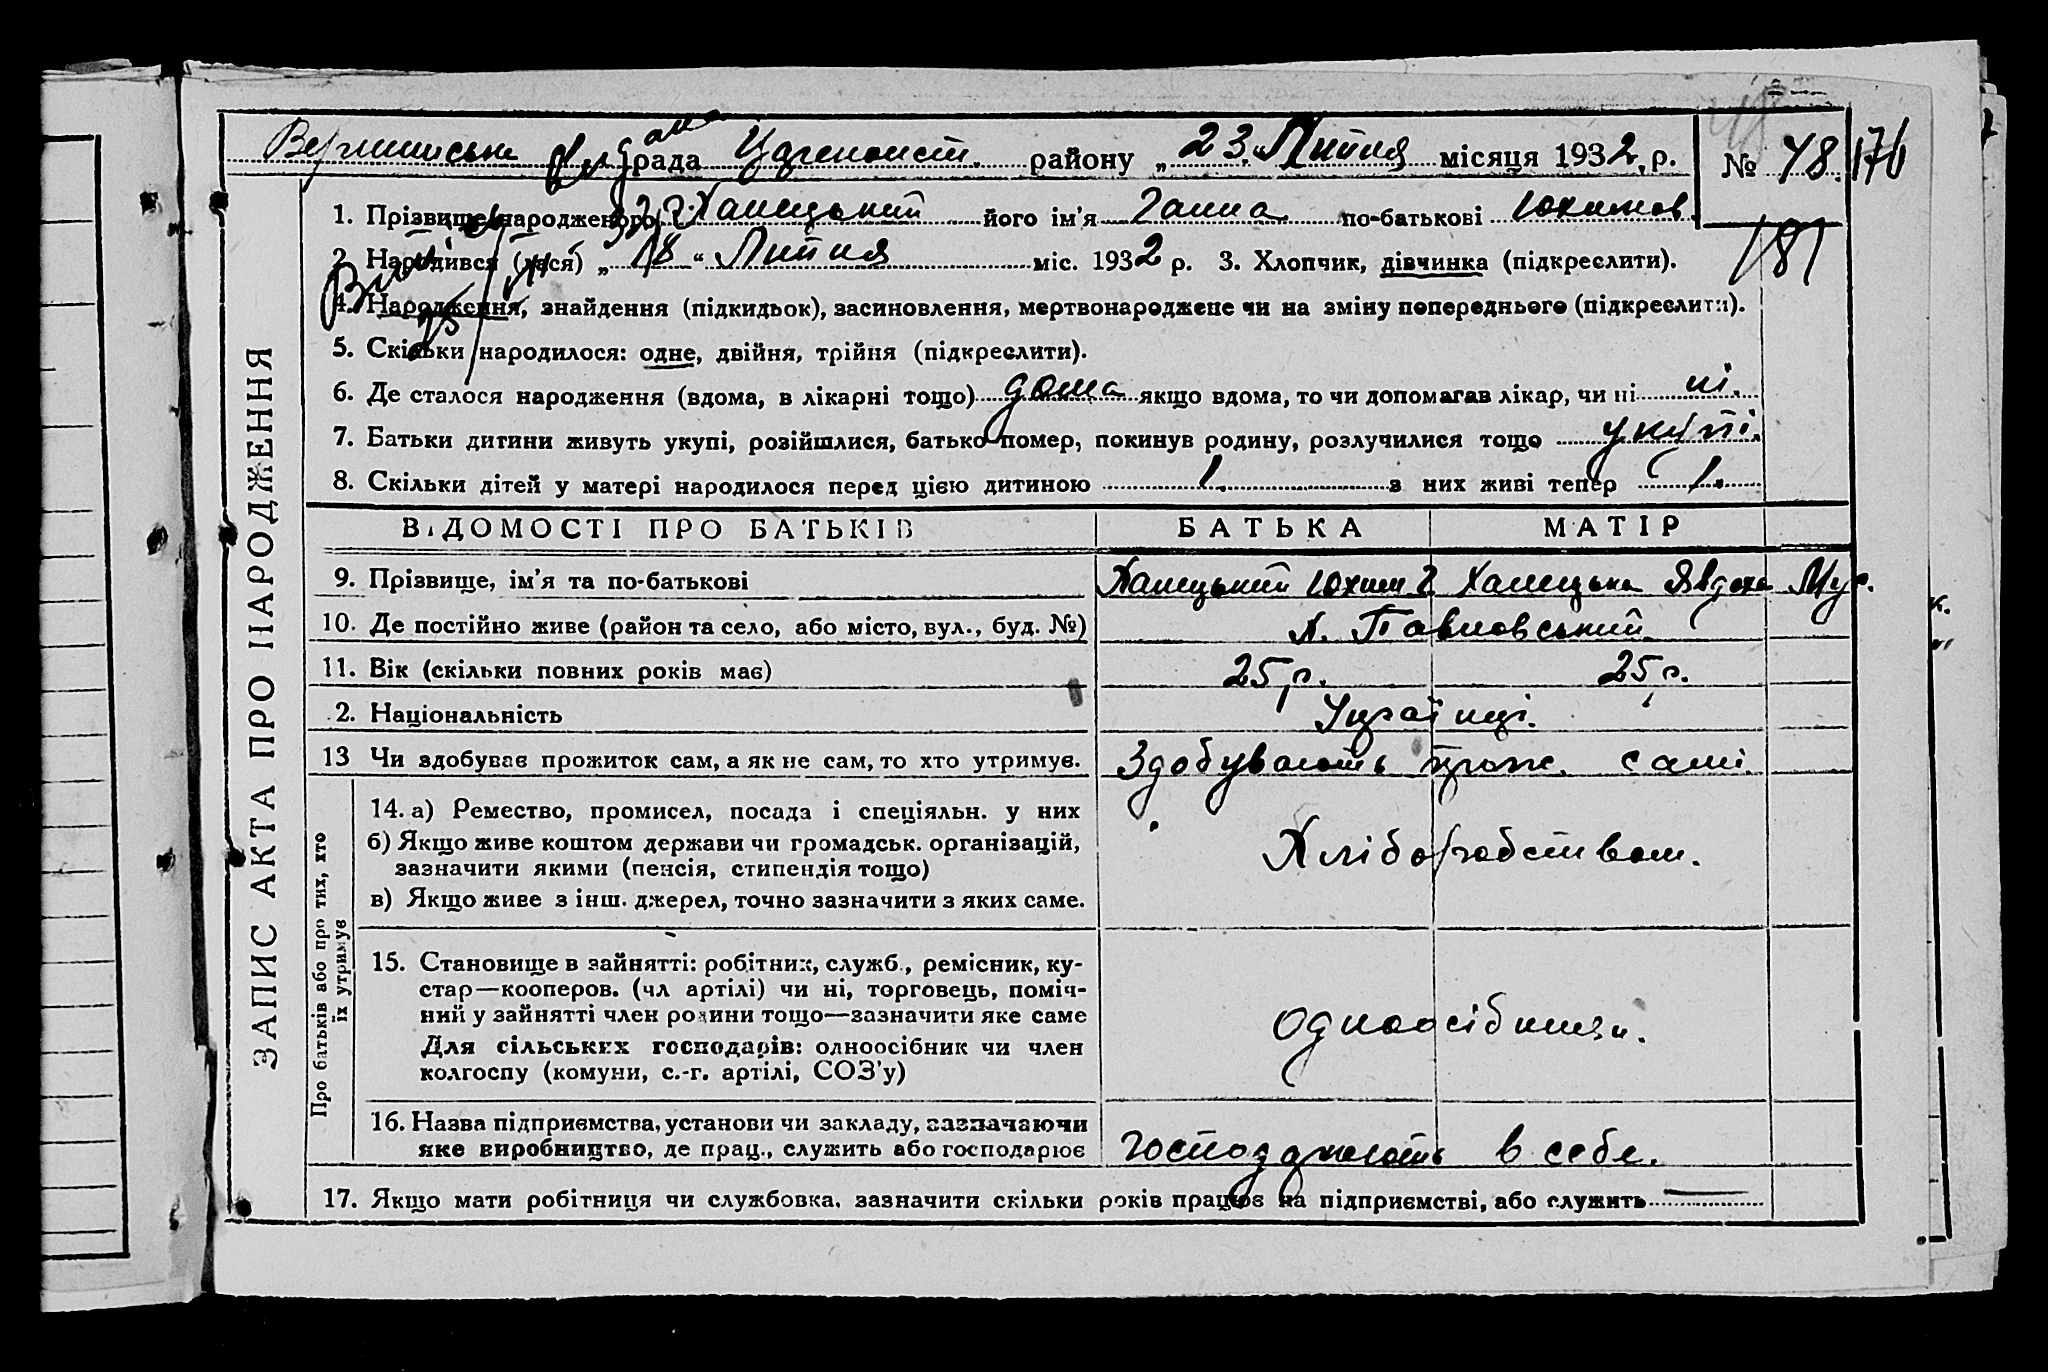 рада Царичанськ. району „23“ Липня місяця 1932 р. № 48. 176
1. Прізвище народженого Ханецький його ім’я Ганна по-батькові Юхимов.
181
2. Народився (лася) „18“ Липня міс. 1932 р. 3. Хлопчик, дівчинка (підкреслити).
4. Народження, знайдення (підкидьок), засиновлення, мертвонароджене чи на зміну попереднього (підкреслити).
5. Скільки народилося: одне, двійня, трійня (підкреслити).
6. Де сталося народження (вдома, в лікарні тощо) дома якщо вдома, то чи допомагав лікар, чи ні ні.
7. Батьки дитини живуть укупі, розійшлися, батько помер, покинув родину, розлучилися тощо укупі.
8. Скільки дітей у матері народилося перед цією дитиною 1. з них живі тепер 1.
ЗАПИС АКТА ПРО НАРОДЖЕННЯ
ВІДОМОСТІ ПРО БАТЬКІВ БАТЬКА МАТІР
9. Прізвище, ім’я та по-батькові Ханецький Юхим Г Ханецька Явдоха Мус.
10. Де постійно живе (район та село, або місто, вул., буд. №) х. Павловський.
11. Вік (скільки повних років має) 25 р. 25 р.
2. Національність Українці.
13 Чи здобуває прожиток сам, а як не сам, то хто утримує. Здобувають прож. самі.
Про батьків або про тих, хто
їх утримує
14. а) Ремество, промисел, посада і спеціяльн. у них
б) Якщо живе коштом держави чи громадськ. організацій,
зазначити якими (пенсія, стипендія тощо)
Хліборобством.
в) Якщо живе з інш. джерел, точно зазначити з яких саме.
15. Становище в зайнятті: робітник, служб., ремісник, ку-
стар—кооперов. (чл артілі) чи ні, торговець, поміч-
ний у зайнятті член родини тощо—зазначити яке саме
Одноосібники.
Для сільських господарів: одноосібник чи член
колгоспу (комуни, с.-г. артілі, СОЗ’у)
16. Назва підприємства, установи чи закладу, зазначаючи
яке виробництво, де прац., служить або господарює в себе.
17. Якщо мати робітниця чи службовка, зазначити скільки років працює на підприємстві, або служить —